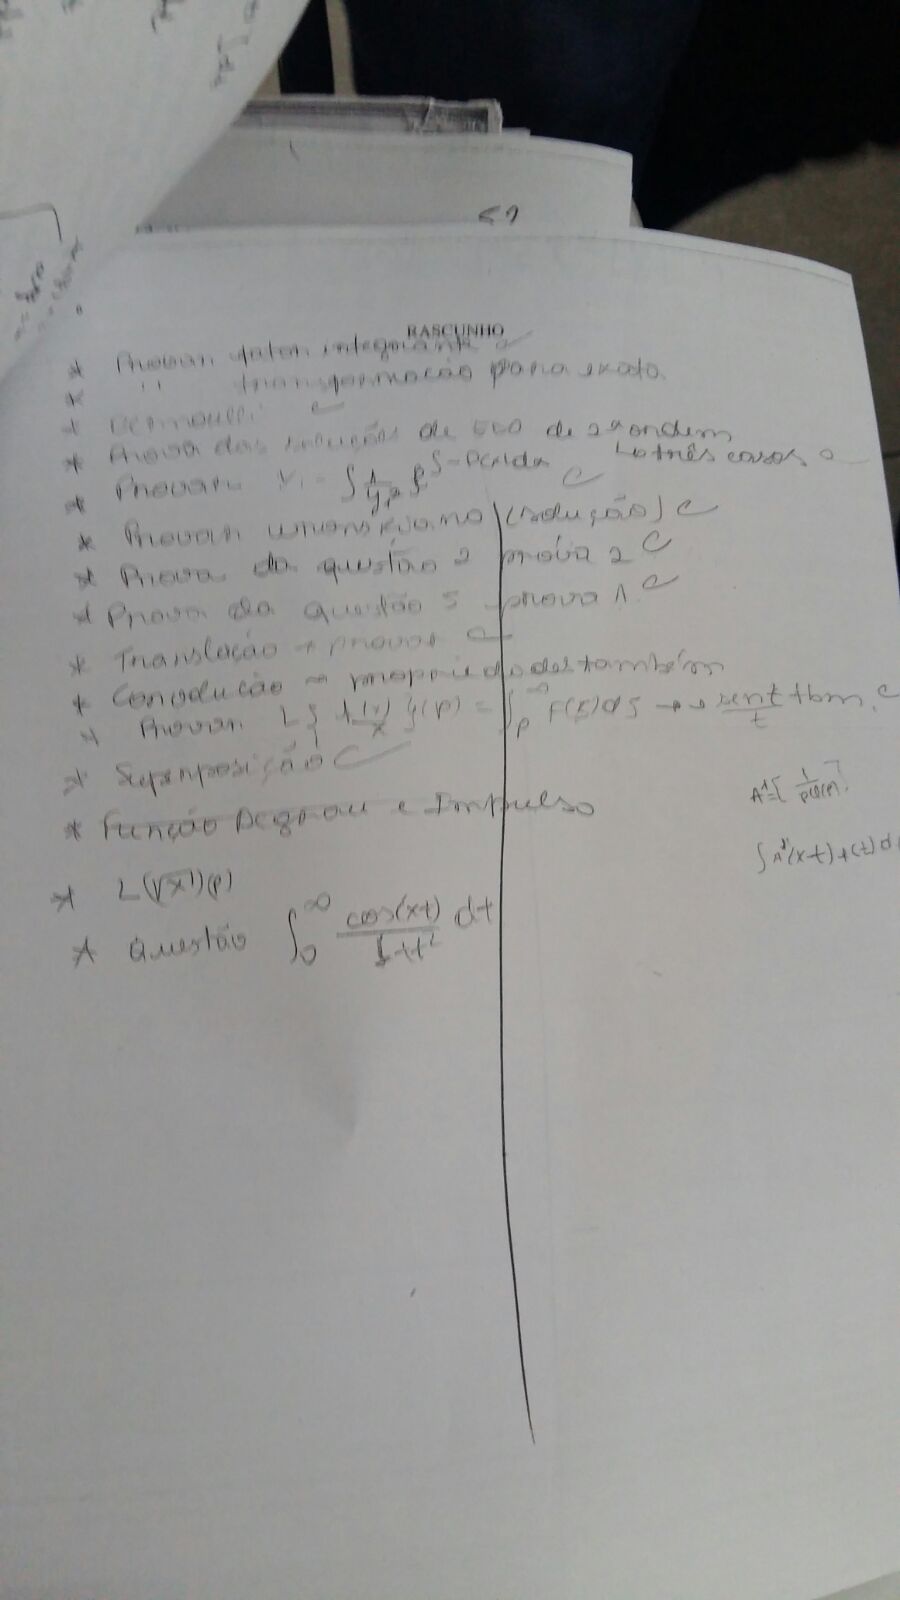 RASCUNHO
* Provar fator integrante
* '' transformação para exata
* Bernoulli
* Prova das soluções de EDO de 2ª ordem
↳ três casos
* Provar V₁ = ∫ 1/y₁² e^∫-P(x)dx
* Provar wronskiano (solução)
* Prova da questão 2 prova 2
* Prova da questão 5 prova 1.
* Translação → provar
* Convolução → propriedades também
* Provar L{f(x)/x}(p) = ∫_p^∞ F(ξ)dξ → sent/t tbm.
* Superposição
* Função Degrau e Impulso
A¹=[1/pQ(p)]
∫A'(x-t)f(t)d
* L(√x)(p)
* Questão ∫₀^∞ cos(xt)/(1+t²) dt